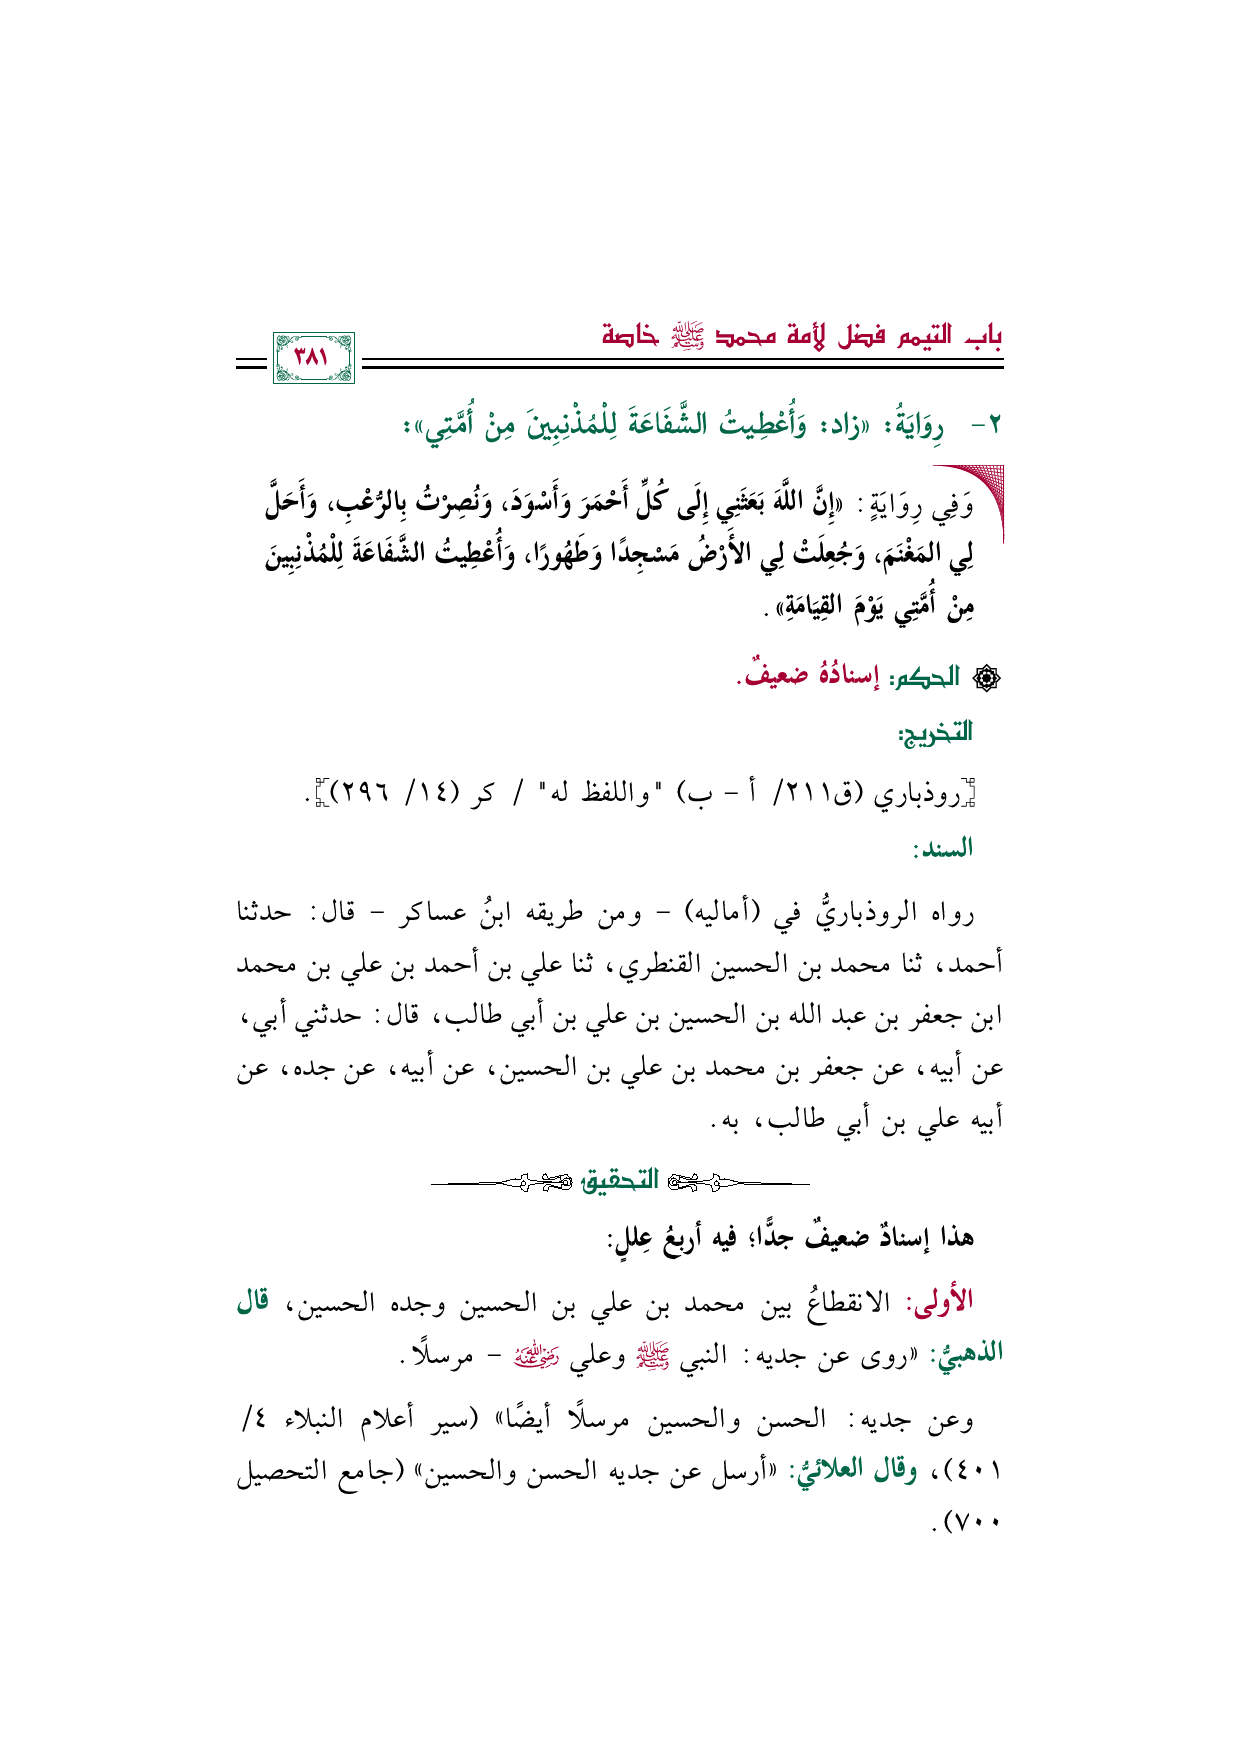 باب التيمم فضل لأمة محمد ﷺ خاصة
٣٨١
٢- رِوَايَةُ: «زاد: وَأُعْطِيتُ الشَّفَاعَةَ لِلْمُذْنِبِينَ مِنْ أُمَّتِي»:
وَفِي رِوَايَةٍ: «إِنَّ اللَّهَ بَعَثَنِي إِلَى كُلِّ أَحْمَرَ وَأَسْوَدَ، وَنُصِرْتُ بِالرُّعْبِ، وَأَحَلَّ
لِي المَغْنَمَ، وَجُعِلَتْ لِي الأَرْضُ مَسْجِدًا وَطَهُورًا، وَأُعْطِيتُ الشَّفَاعَةَ لِلْمُذْنِبِينَ
مِنْ أُمَّتِي يَوْمَ القِيَامَةِ».
الحكم: إسنادُهُ ضعيفٌ.
التخريج:
[روذباري (ق٢١١/ أ - ب) "واللفظ له" / كر (١٤/ ٢٩٦)].
السند:
رواه الروذباريُّ في (أماليه) - ومن طريقه ابنُ عساكر - قال: حدثنا
أحمد، ثنا محمد بن الحسين القنطري، ثنا علي بن أحمد بن علي بن محمد
ابن جعفر بن عبد الله بن الحسين بن علي بن أبي طالب، قال: حدثني أبي،
عن أبيه، عن جعفر بن محمد بن علي بن الحسين، عن أبيه، عن جده، عن
أبيه علي بن أبي طالب، به.
التحقيق
هذا إسنادٌ ضعيفٌ جدًّا؛ فيه أربعُ عِللٍ:
الأولى: الانقطاعُ بين محمد بن علي بن الحسين وجده الحسين، قال
الذهبيُّ: «روى عن جديه: النبي ﷺ وعلي رضي الله عنه - مرسلًا.
وعن جديه: الحسن والحسين مرسلًا أيضًا» (سير أعلام النبلاء ٤/
٤٠١)، وقال العلائيُّ: «أرسل عن جديه الحسن والحسين» (جامع التحصيل
٧٠٠).